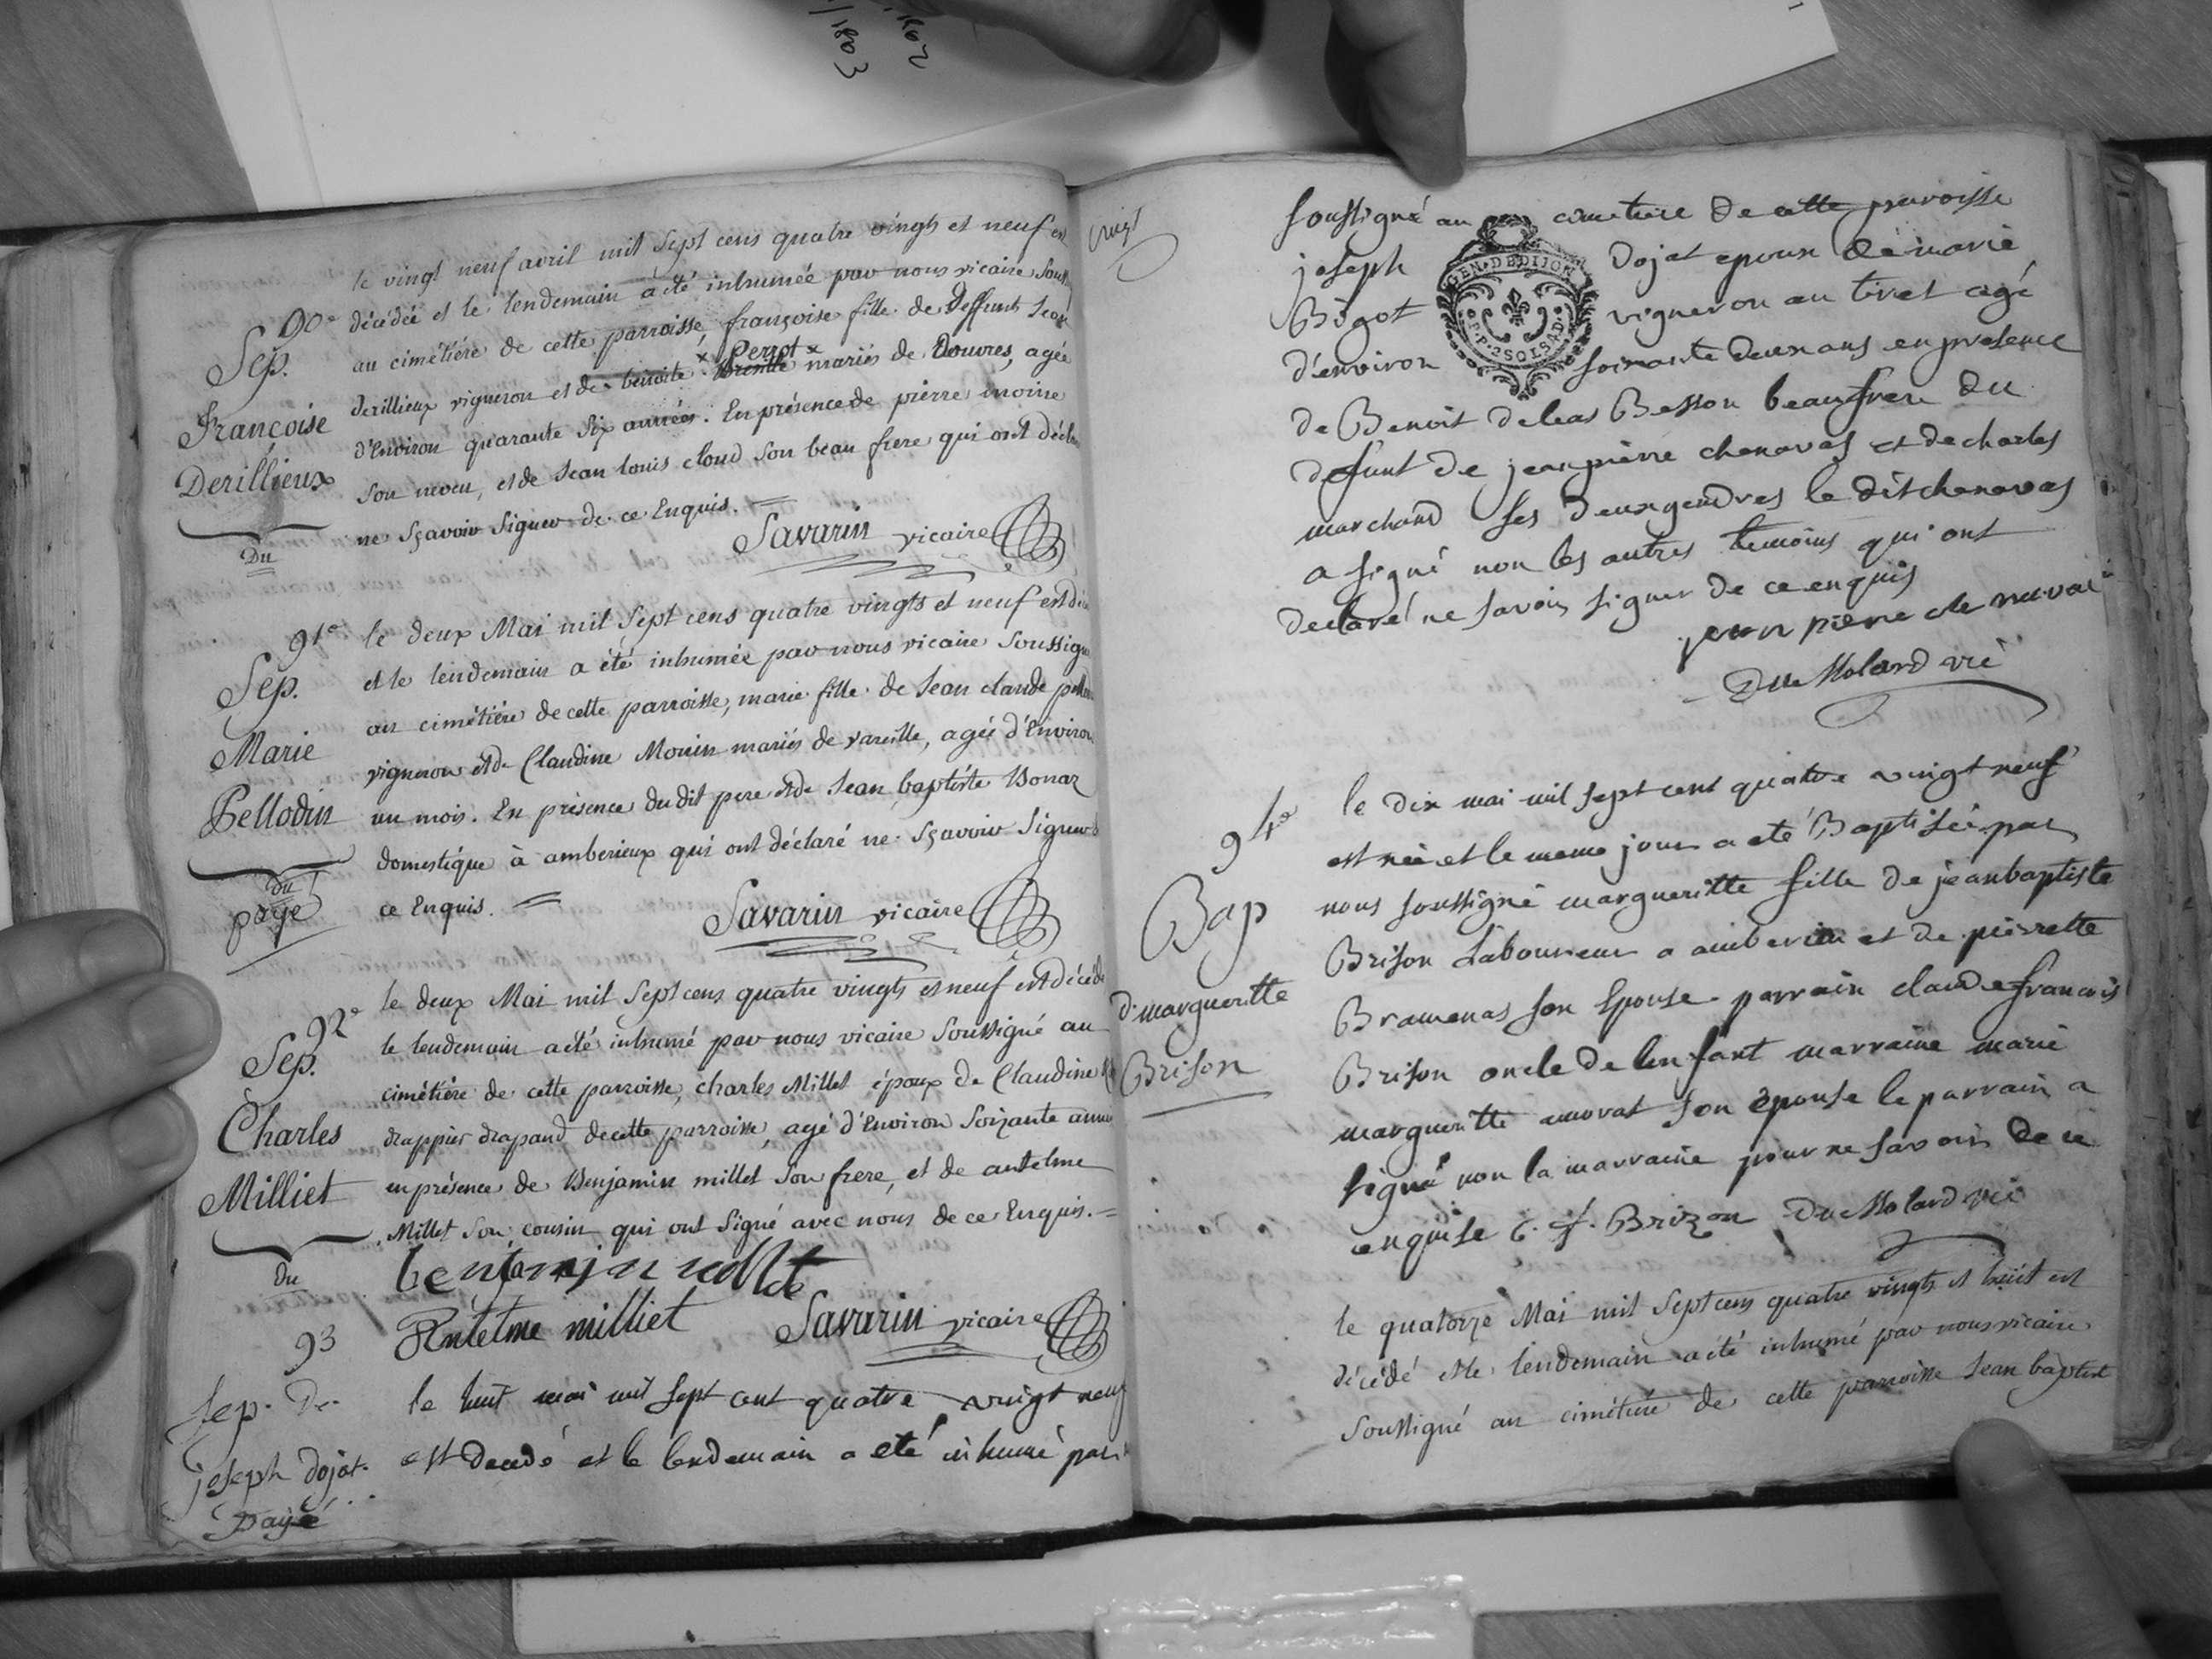 1802
/1803
90e
Sep.
Françoise
Derillieux
Du
le vingt neuf avril mil Sept cens quatre vingts et neuf est
décédée et le lendemain a été inhumée par nous vicaire Souss
au cimétiére de cette parroisse, françoise fille de Deffunts Jean
x Perrot x
derillieux vigneron et de benoite mariés de Douvres, agée
d'Environ quarante Six années. En présence de pierre moine
Son neveu, et de Jean louis cloud Son beau frere qui ont décla
ne Sçavoir Signer de ce Enquis.
Savarin vicaire
91e
Sep.
Marie
Pellodin
du
payé
le deux Mai mil Sept cens quatre vingts et neuf est dé
et le lendemain a été inhumée par nous vicaire Soussigné
au cimétiére de cette parroisse, marie fille de Jean claude
vigneron et de Claudine Monin mariés de vareille, agée d'Environ
un mois. En présence du dit pere et de Jean baptiste Bonaz
domestique à amberieux qui ont déclaré ne Sçavoir Signer
ce Enquis.
Savarin vicaire
92e
Sep.
Charles
Milliet
du
le deux Mai mil Sept cens quatre vingts et neuf est décédé
le lendemain a été inhumé par nous vicaire Soussigné au
cimétiére de cette parroisse, charles Millet époux de Claudine
drappier drapand de cette parroisse, agé d'Environ Soixante anné
en présence de Benjamin millet Son frere, et de antelme
Millet Son cousin qui ont Signé avec nous de ce Enquis.
benjamin millet
Antelme milliet Savarin vicaire
93
Sep. De
joseph dojat
Payé
le huit mai mil sept cent quatre vingt neuf
est decedé et le lendemain a eté inhumé par
vingt
soussigné au cimetiere de cette parroisse
joseph dojat epoux de marie
Bigot vigneron au tiret agé
d'environ soixante deux ans en presence
de Benoit deleas Besson beaufrere du
defunt de jean pierre chenavas et de charles
marchand ses deux gendres le dit chenavas
a signé non les autres temoins qui ont
declaré ne savoir signer de ce enquis
jean pierre che navas
Du Molard vic
GEN. DE DIJON
P.P. 2 SOLS 4 D.
94e
Bap
d margueritte
Brison
le dix mai mil sept cent quatre vingt neuf
est née et le meme jour a eté Baptisée par
nous soussigné margueritte fille de jean baptiste
Brison Laboureur a amberieu et de pierrette
Bramenas son Epouse parrain claude francois
Brison oncle de lenfant marraine marie
margueritte morat son épouse le parrain a
signé non la marraine pour ne savoir de ce
enquise C. f. Brizon Du Molard vic
le quatorze Mai mil Sept cens quatre vingts et huit est
décédé et le lendemain a été inhumé par nous vicaire
Soussigné au cimétiére de cette parroisse Jean baptiste